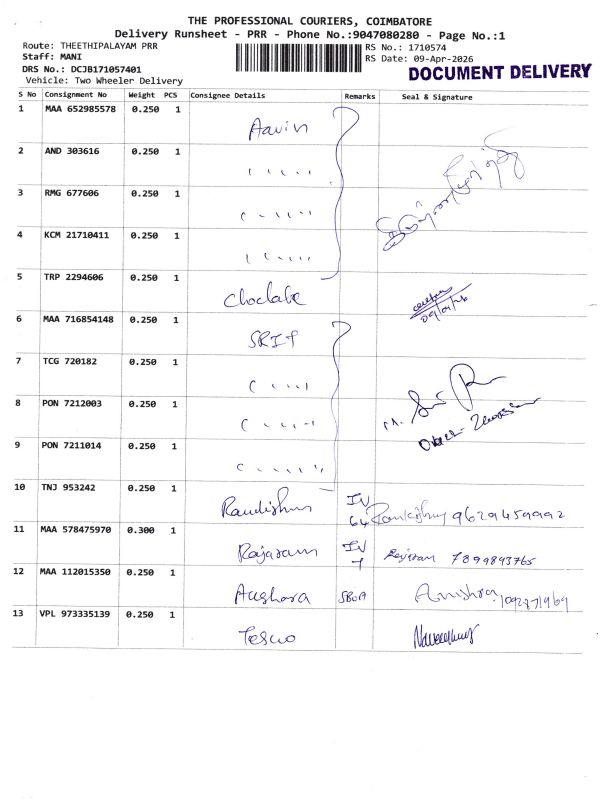 THE PROFESSIONAL COURIERS, COIMBATORE
Delivery Runsheet - PRR - Phone No.:9047080280 - Page No.:1
Route: THEETHIPALAYAM PRR
RS No.: 1710574
Staff: MANI
RS Date: 09-Apr-2026
DRS No.: DCJB171057401
DOCUMENT DELIVERY
Vehicle: Two Wheeler Delivery
S No Consignment No Weight PCS Consignee Details Remarks Seal & Signature
1 MAA 652985578 0.250 1 Aavin
2 AND 303616 0.250 1
3 RMG 677606 0.250 1
4 KCM 21710411 0.250 1
5 TRP 2294606 0.250 1 Choclate
09/04/26
6 MAA 716854148 0.250 1
7 TCG 720182 0.250 1
8 PON 7212003 0.250 1
9 PON 7211014 0.250 1
10 TNJ 953242 0.250 1 IV
64 9629459992
11 MAA 578475970 0.300 1 Rajaram IV
7 Rajaram 7899893765
12 MAA 112015350 0.250 1
13 VPL 973335139 0.250 1